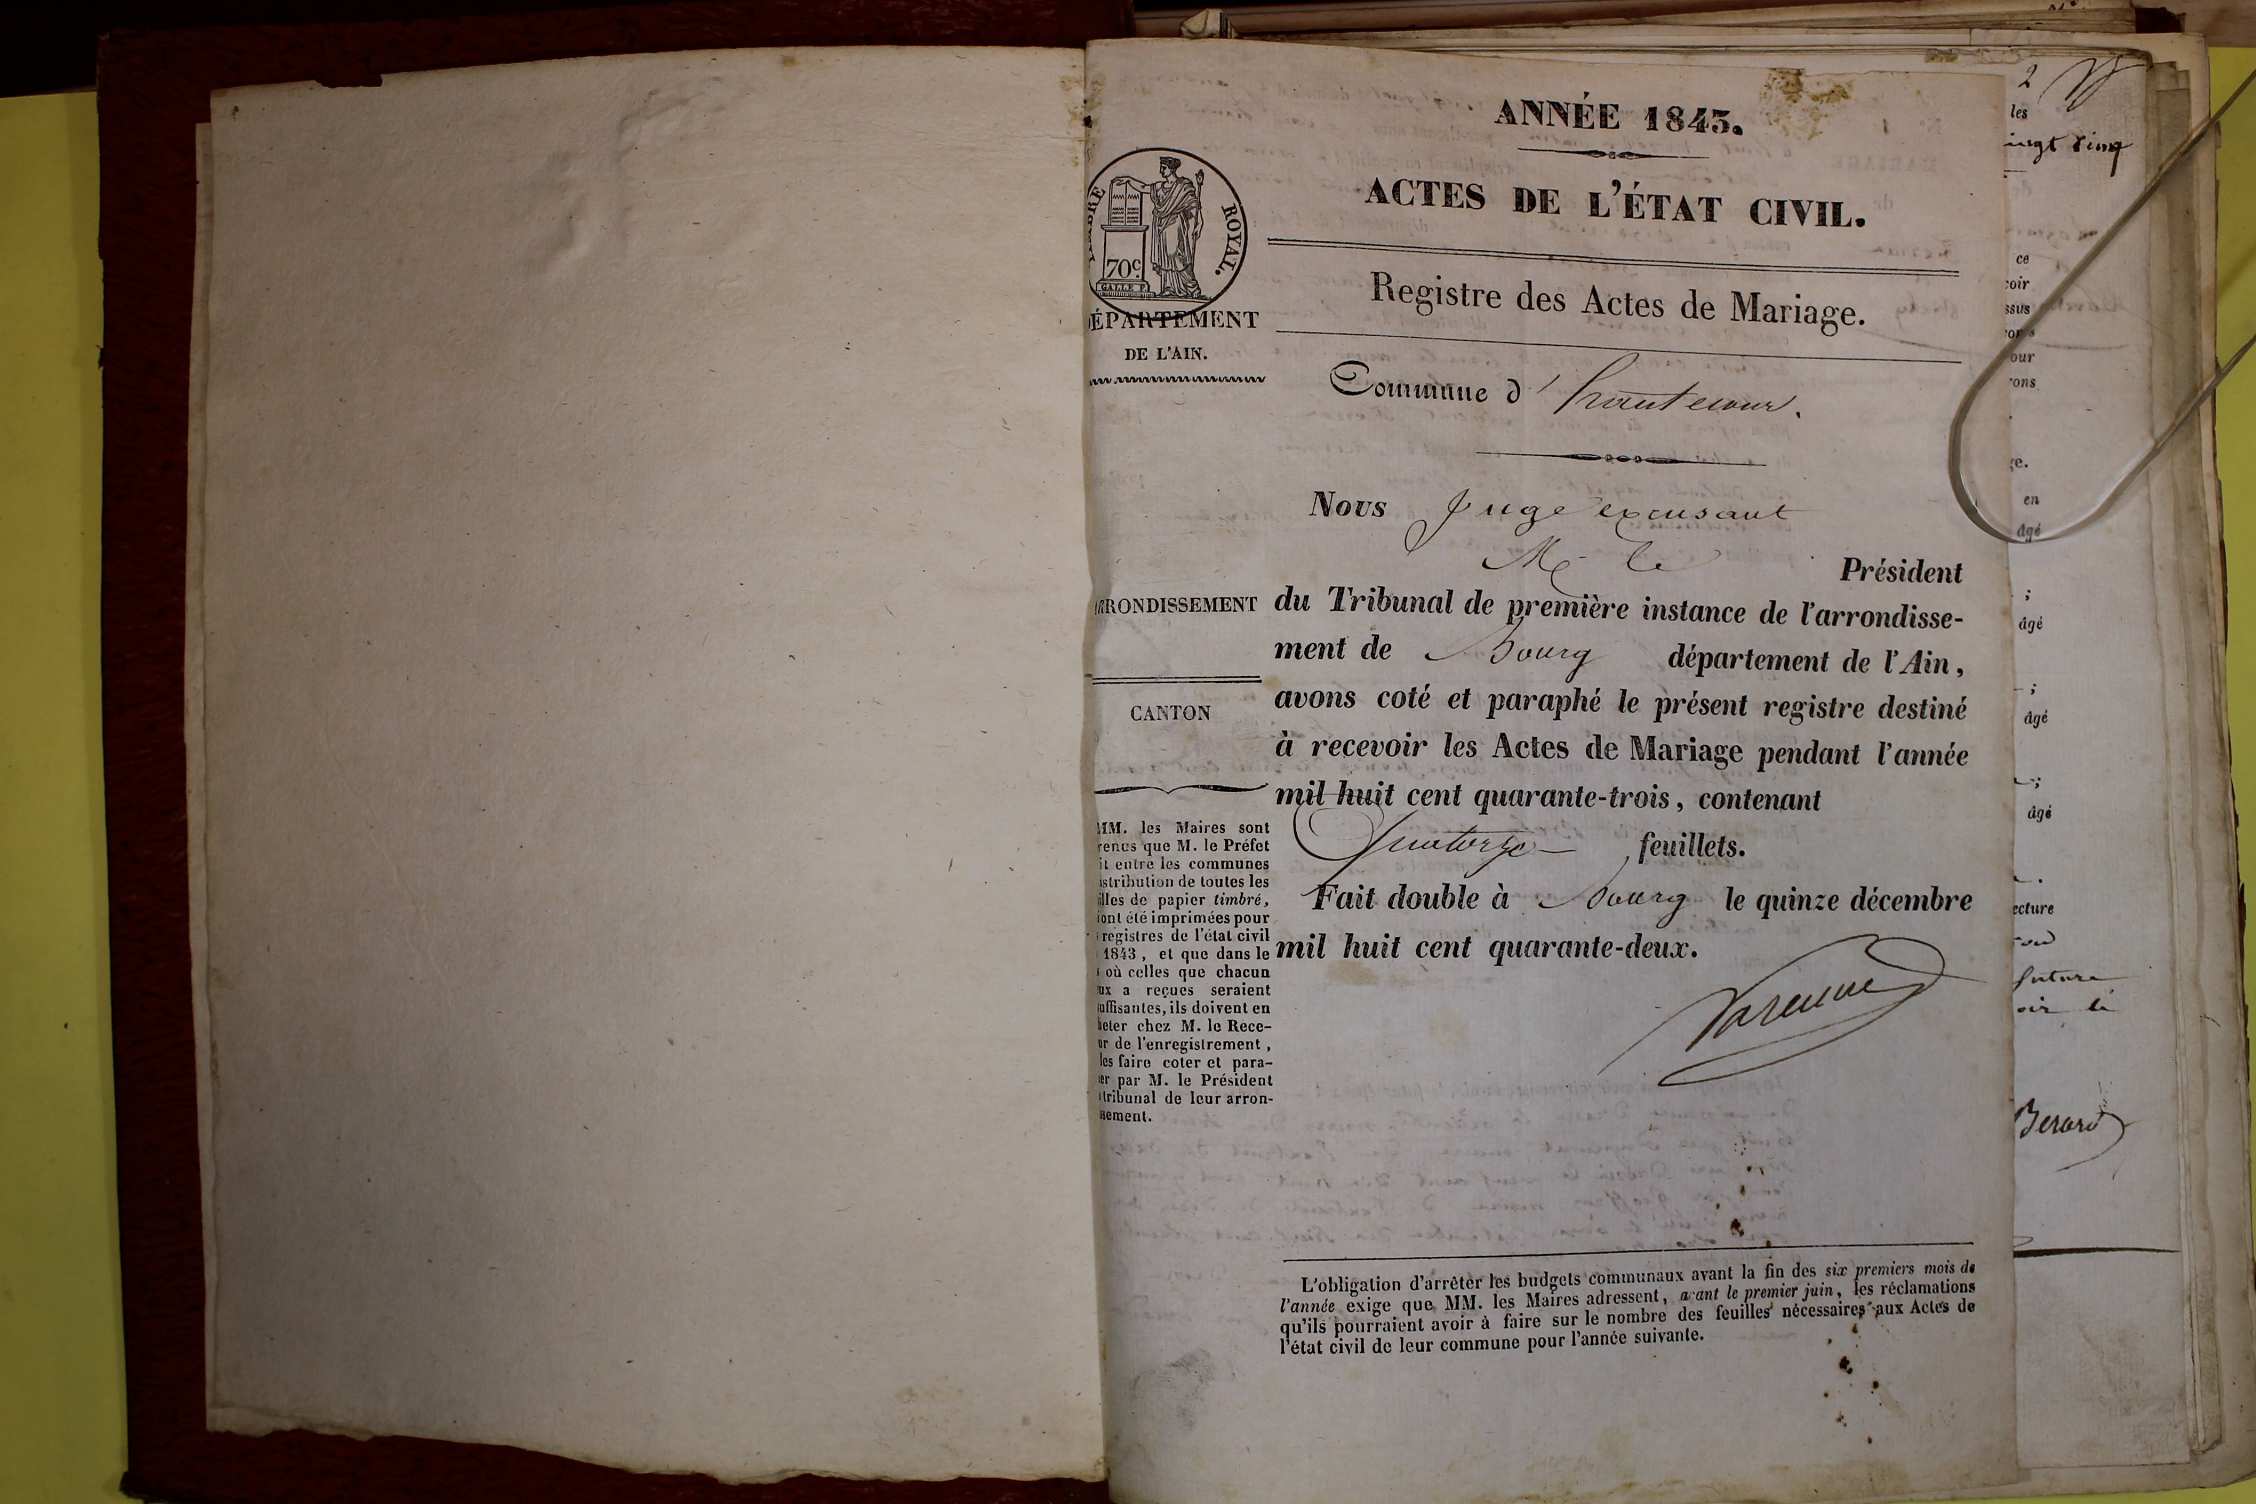 ANNÉE 1843.
ACTES DE L'ÉTAT CIVIL.
ROYAL.
70c.
DÉPARTEMENT
DE L'AIN.
Registre des Actes de Mariage.
Commune d'hautecour.
Nous Juge excusant
Mr le Président
ARRONDISSEMENT
du Tribunal de première instance de l'arrondisse-
ment de Bourg département de l'Ain,
CANTON
avons coté et paraphé le présent registre destiné
à recevoir les Actes de Mariage pendant l'année
mil huit cent quarante-trois, contenant
Quatorze feuillets.
Fait double à Bourg le quinze décembre
mil huit cent quarante-deux.
MM. les Maires sont
que M. le Préfet
entre les communes
de toutes les
de papier timbré,
ont été imprimées pour
registres de l'état civil
1843, et que dans le
où celles que chacun
a reçues seraient
ils doivent en
chez M. le Rece-
de l'enregistrement,
les faire coter et para-
par M. le Président
tribunal de leur arron-
L'obligation d'arrêter les budgets communaux avant la fin des six premiers mois de
l'année exige que MM. les Maires adressent, avant le premier juin, les réclamations
qu'ils pourraient avoir à faire sur le nombre des feuilles nécessaires aux Actes de
l'état civil de leur commune pour l'année suivante.
2
les
cinq
ce
en
âgé
;
âgé
;
âgé
;
âgé
future
Berard